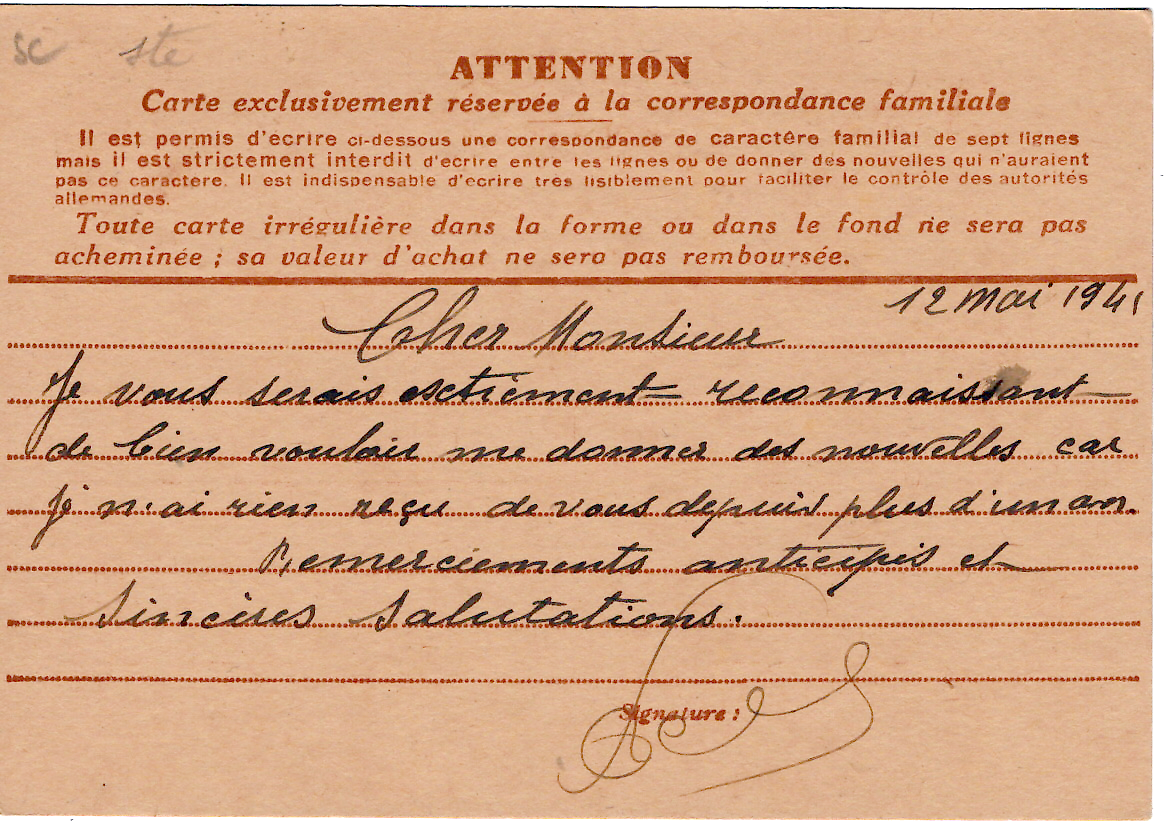 sc ste
ATTENTION
Carte exclusivement réservée à la correspondance familiale
Il est permis d'écrire ci-dessous une correspondance de caractère familial de sept lignes
mais il est strictement interdit d'ecrire entre les lignes ou de donner des nouvelles qui n'auraient
pas ce caractere. Il est indispensable d'ecrire très lisiblement pour faciliter le contrôle des autorités
allemandes.
Toute carte irrégulière dans la forme ou dans le fond ne sera pas
acheminée ; sa valeur d'achat ne sera pas remboursée.
12 mai 1941
Cher Monsieur
Je vous serais extrèment reconnaissant
de bien vouloir me donner des nouvelles car
je n'ai rien reçu de vous depuis plus d'un an.
Remerciements anticipés et
Sincères Salutations.
Signature :